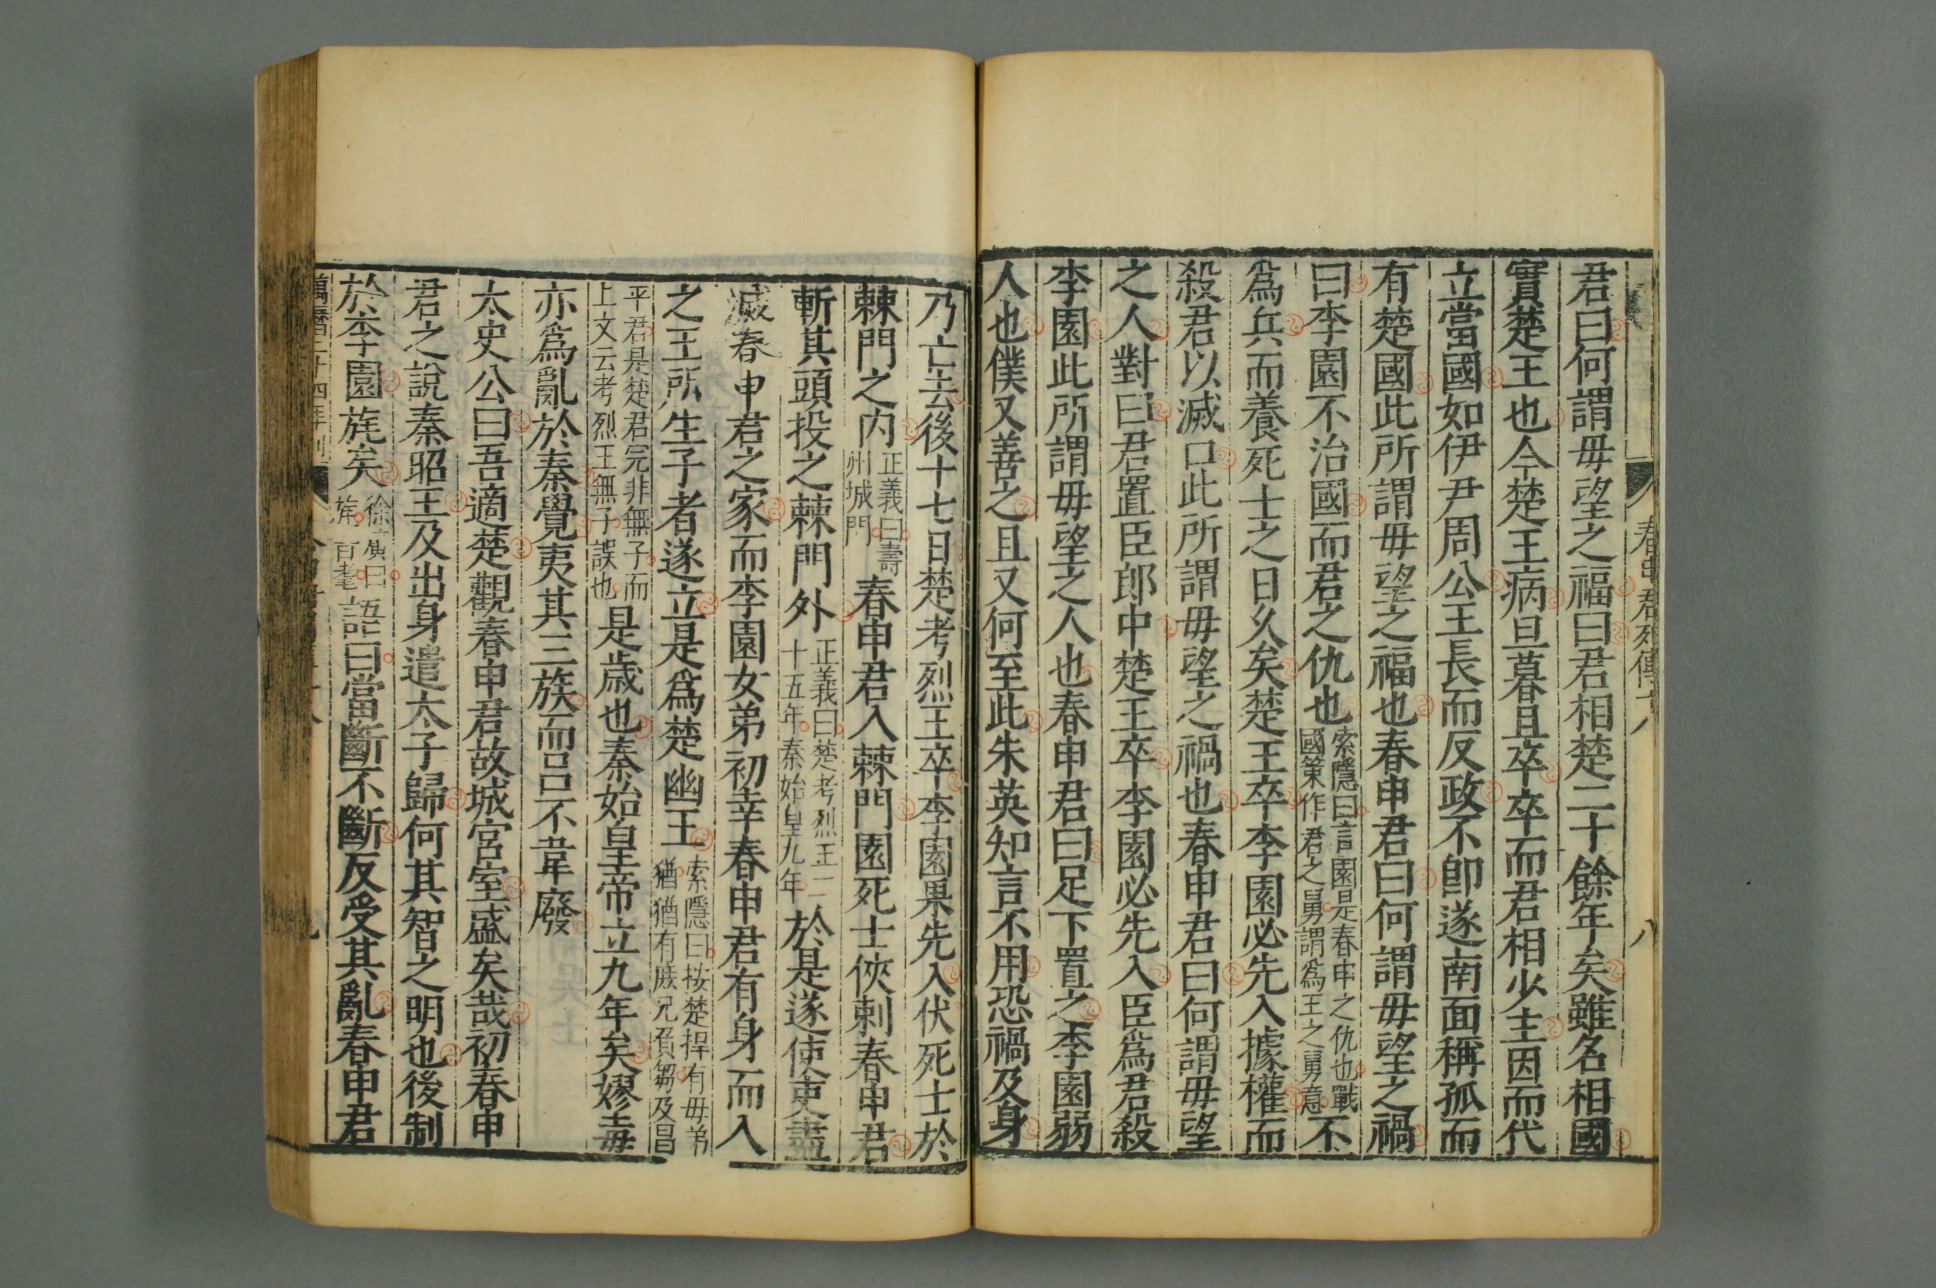 春申君列傳十八 八
君曰何謂毋望之福曰君相楚二十餘年矣雖名相國
實楚王也今楚王病旦暮且卒卒而君相少主因而代
立當國如伊尹周公王長而反政不卽遂南面稱孤而
有楚國此所謂毋望之福也春申君曰何謂毋望之禍
曰李園不治國而君之仇也索隱曰言園是春申之仇也戰國策作君之舅謂爲王之舅意不
爲兵而養死士之日久矣楚王卒李園必先入據權而
殺君以滅口此所謂毋望之禍也春申君曰何謂毋望
之人對曰君置臣郎中楚王卒李園必先入臣爲君殺
李園此所謂毋望之人也春申君曰足下置之李園弱
人也僕又善之且又何至此朱英知言不用恐禍及身
乃亡去後十七日楚考烈王卒李園果先入伏死士於
棘門之内正義曰壽州城門春申君入棘門園死士俠刺春申君
斬其頭投之棘門外正義曰楚考烈王二十五年秦始皇九年於是遂使吏盡
滅春申君之家而李園女弟初幸春申君有身而入
之王所生子者遂立是爲楚幽王索隱曰按楚捍有母弟猶猶有庶兄負芻及昌
平君是楚君完非無子而上文云考烈王無子誤也是歲也秦始皇帝立九年矣嫪毐
亦爲亂於秦覺夷其三族而呂不韋廢
太史公曰吾適楚觀春申君故城宮室盛矣哉初春申
君之說秦昭王及出身遣太子歸何其智之明也後制
於李園旄矣徐廣曰旄音耄語曰當斷不斷反受其亂春申君
萬曆二十四年刊